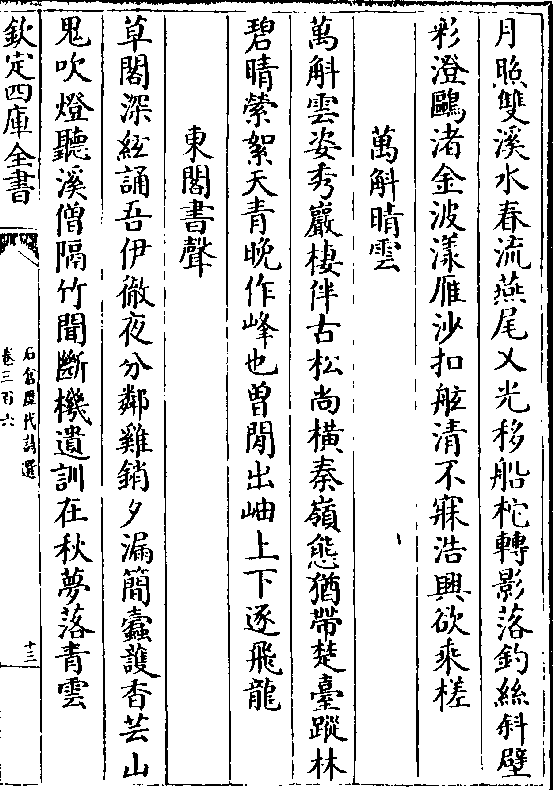 月照雙溪水春流燕尾乂光移船柁轉影落釣絲斜壁
彩澄鷗渚金波漾雁沙扣舷清不寐浩興欲乘槎
萬斛晴雲
萬斛雲姿秀巖棲伴古松尚橫秦嶺態猶帶楚臺蹤林
碧晴縈絮天青晚作峰也曾閒出岫上下逐飛龍
東閣書聲
草閣深絃誦吾伊徹夜分鄰雞銷夕漏簡蠹護香芸山
鬼吹燈聽溪僧隔竹聞斷機遺訓在秋夢落青雲
欽定四庫全書
石倉歷代詩選
卷三百六
十三